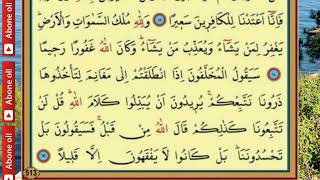 فَاِنَّٓا اَعْتَدْنَا لِلْكَافِر۪ينَ سَع۪يرًا ﴿١٣﴾ وَلِلّٰهِ مُلْكُ السَّمٰوَاتِ وَالْاَرْضِۜ
يَغْفِرُ لِمَنْ يَشَٓاءُ وَيُعَذِّبُ مَنْ يَشَٓاءُۜ وَكَانَ اللّٰهُ غَفُورًا رَح۪يمًا
﴿١٤﴾ سَيَقُولُ الْمُخَلَّفُونَ اِذَا انْطَلَقْتُمْ اِلٰى مَغَانِمَ لِتَأْخُذُوهَا
ذَرُونَا نَتَّبِعْكُمْۚ يُر۪يدُونَ اَنْ يُبَدِّلُوا كَلَامَ اللّٰهِۜ قُلْ لَنْ
تَتَّبِعُونَا كَذٰلِكُمْ قَالَ اللّٰهُ مِنْ قَبْلُۚ فَسَيَقُولُونَ بَلْ
تَحْسُدُونَنَاۜ بَلْ كَانُوا لَا يَفْقَهُونَ اِلَّا قَل۪يلًا ﴿١٥﴾
513
Abone ol!
Abone ol!
Abone ol!
Abone ol!
Abone ol!
Abone ol!